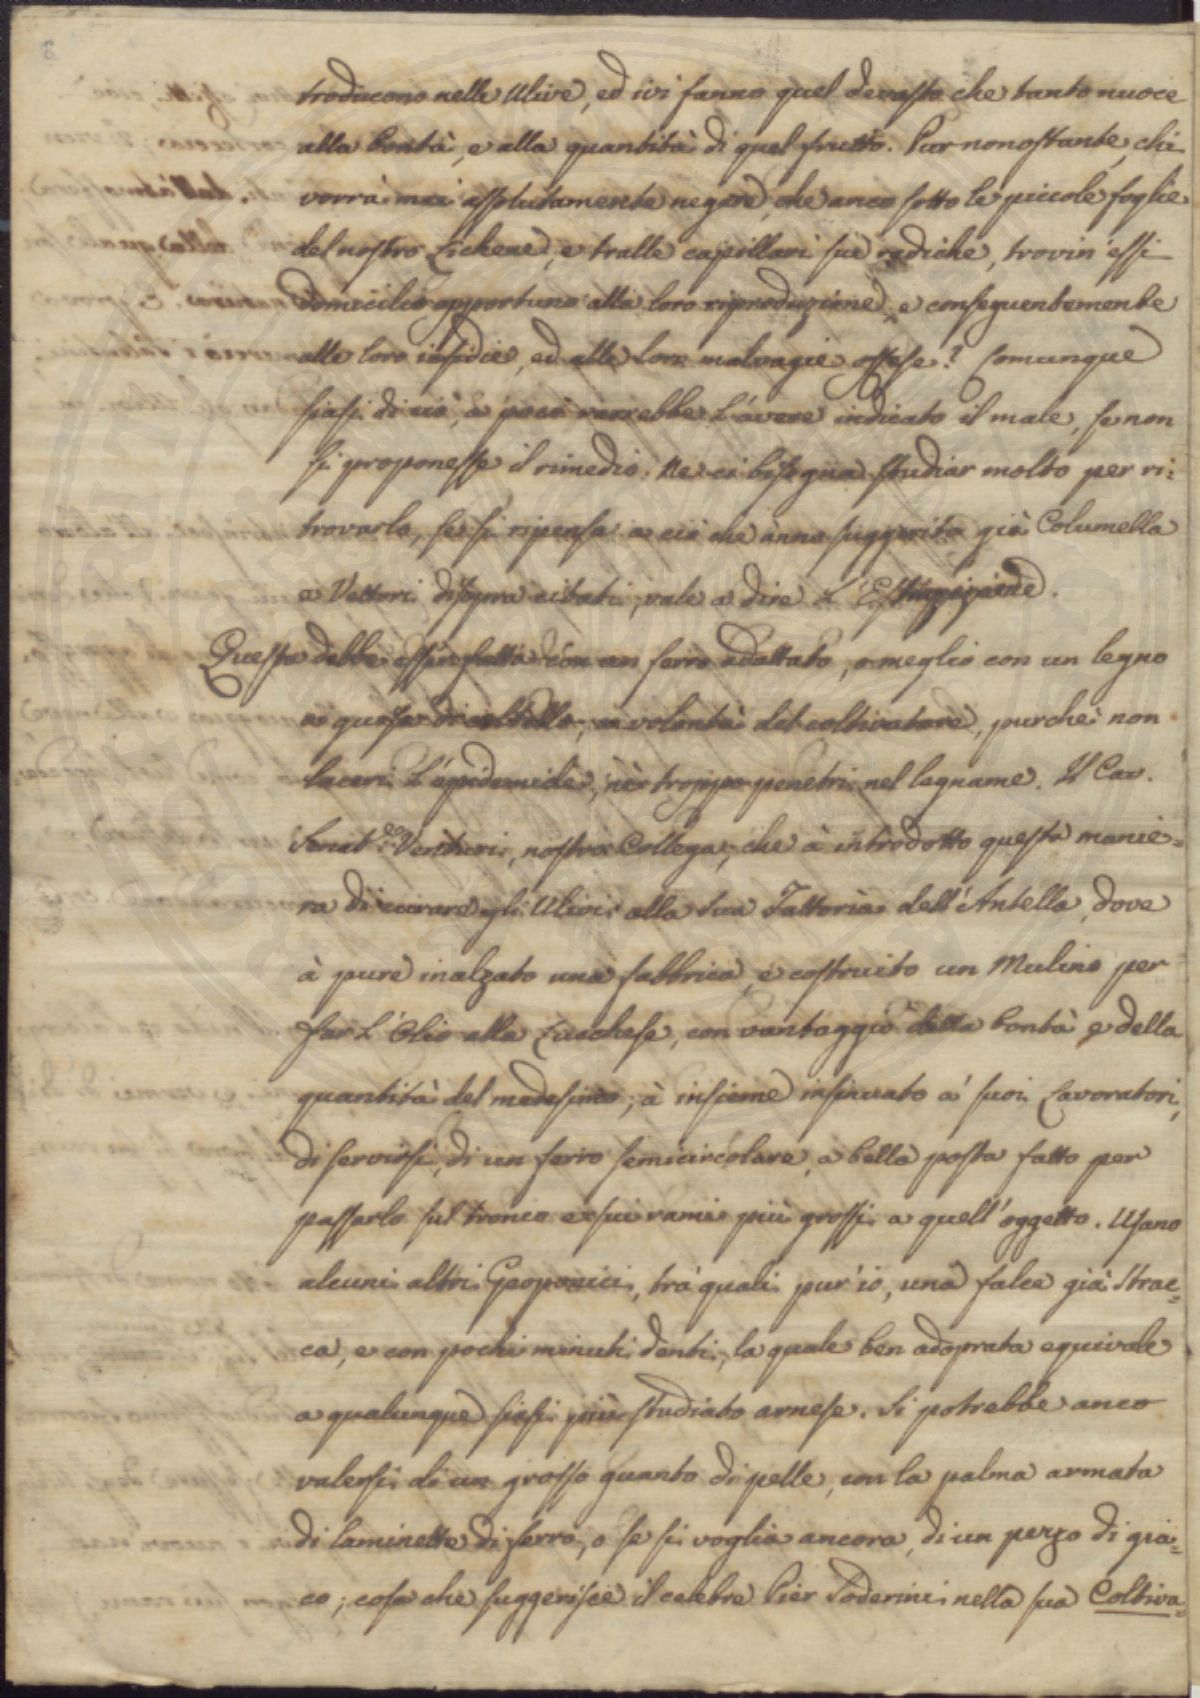 troducono nelle Ulive, ed ivi fanno quel devasto che tanto nuoce
alla bontà, e alla quantità di quel frutto. Pur nonostante, chi
vorrà mai assolutamente negare, che anco sotto le piccole foglie
del nostro Lichene, e tralle capillari sue radiche, trovin' essi
domicilio opportuno alla loro riproduzione, e conseguentemente
alle loro insidie, ed alle loro malvagie offese? Comunque
siasi di ciò, a poco varrebbe l'avere indicato il male, se non
si proponesse il rimedio. Ne ci bisogna studiar molto per ri:
trovarlo, se si ripensa a ciò che ànno suggerito già Columella
e Vettori disopra citati; vale a dire l'
Questa debbe esser fatta con un ferro adattato, o meglio con un legno
a guisa di coltello, a volontà del coltivatore, purchè non
laceri l'epidermide, nè troppo penetri nel legname. Il Cav.
Senat.re Venturi, nostro Collega, che à introdotto questa manie=
ra di curare gli Ulivi alla sua Fattoria dell'Antella, dove
à pure inalzato una fabbrica, e costruito un Mulino per
far l'Olio alla Lucchese, con vantaggio della bontà e della
quantità del medesimo; à insieme insinuato a' suoi Lavoratori,
di servirsi, di un ferro semicircolare, a bella posta fatto per
passarlo sul tronco e sui rami più grossi a quell'oggetto. Usano
alcuni altri Geoponici, tra' quali pur'io, una falce già strac=
ca, e con pochi minuti denti, la quale ben adoprata equivale
a qualunque siasi più studiato arnese. Si potrebbe anco
valersi di un grosso guanto di pelle, con la palma armata
di laminette di ferro, o se si voglia ancora, di un pezzo di gia=
co; cosa che suggerisce il celebre Pier Soderini nella sua Coltiva=